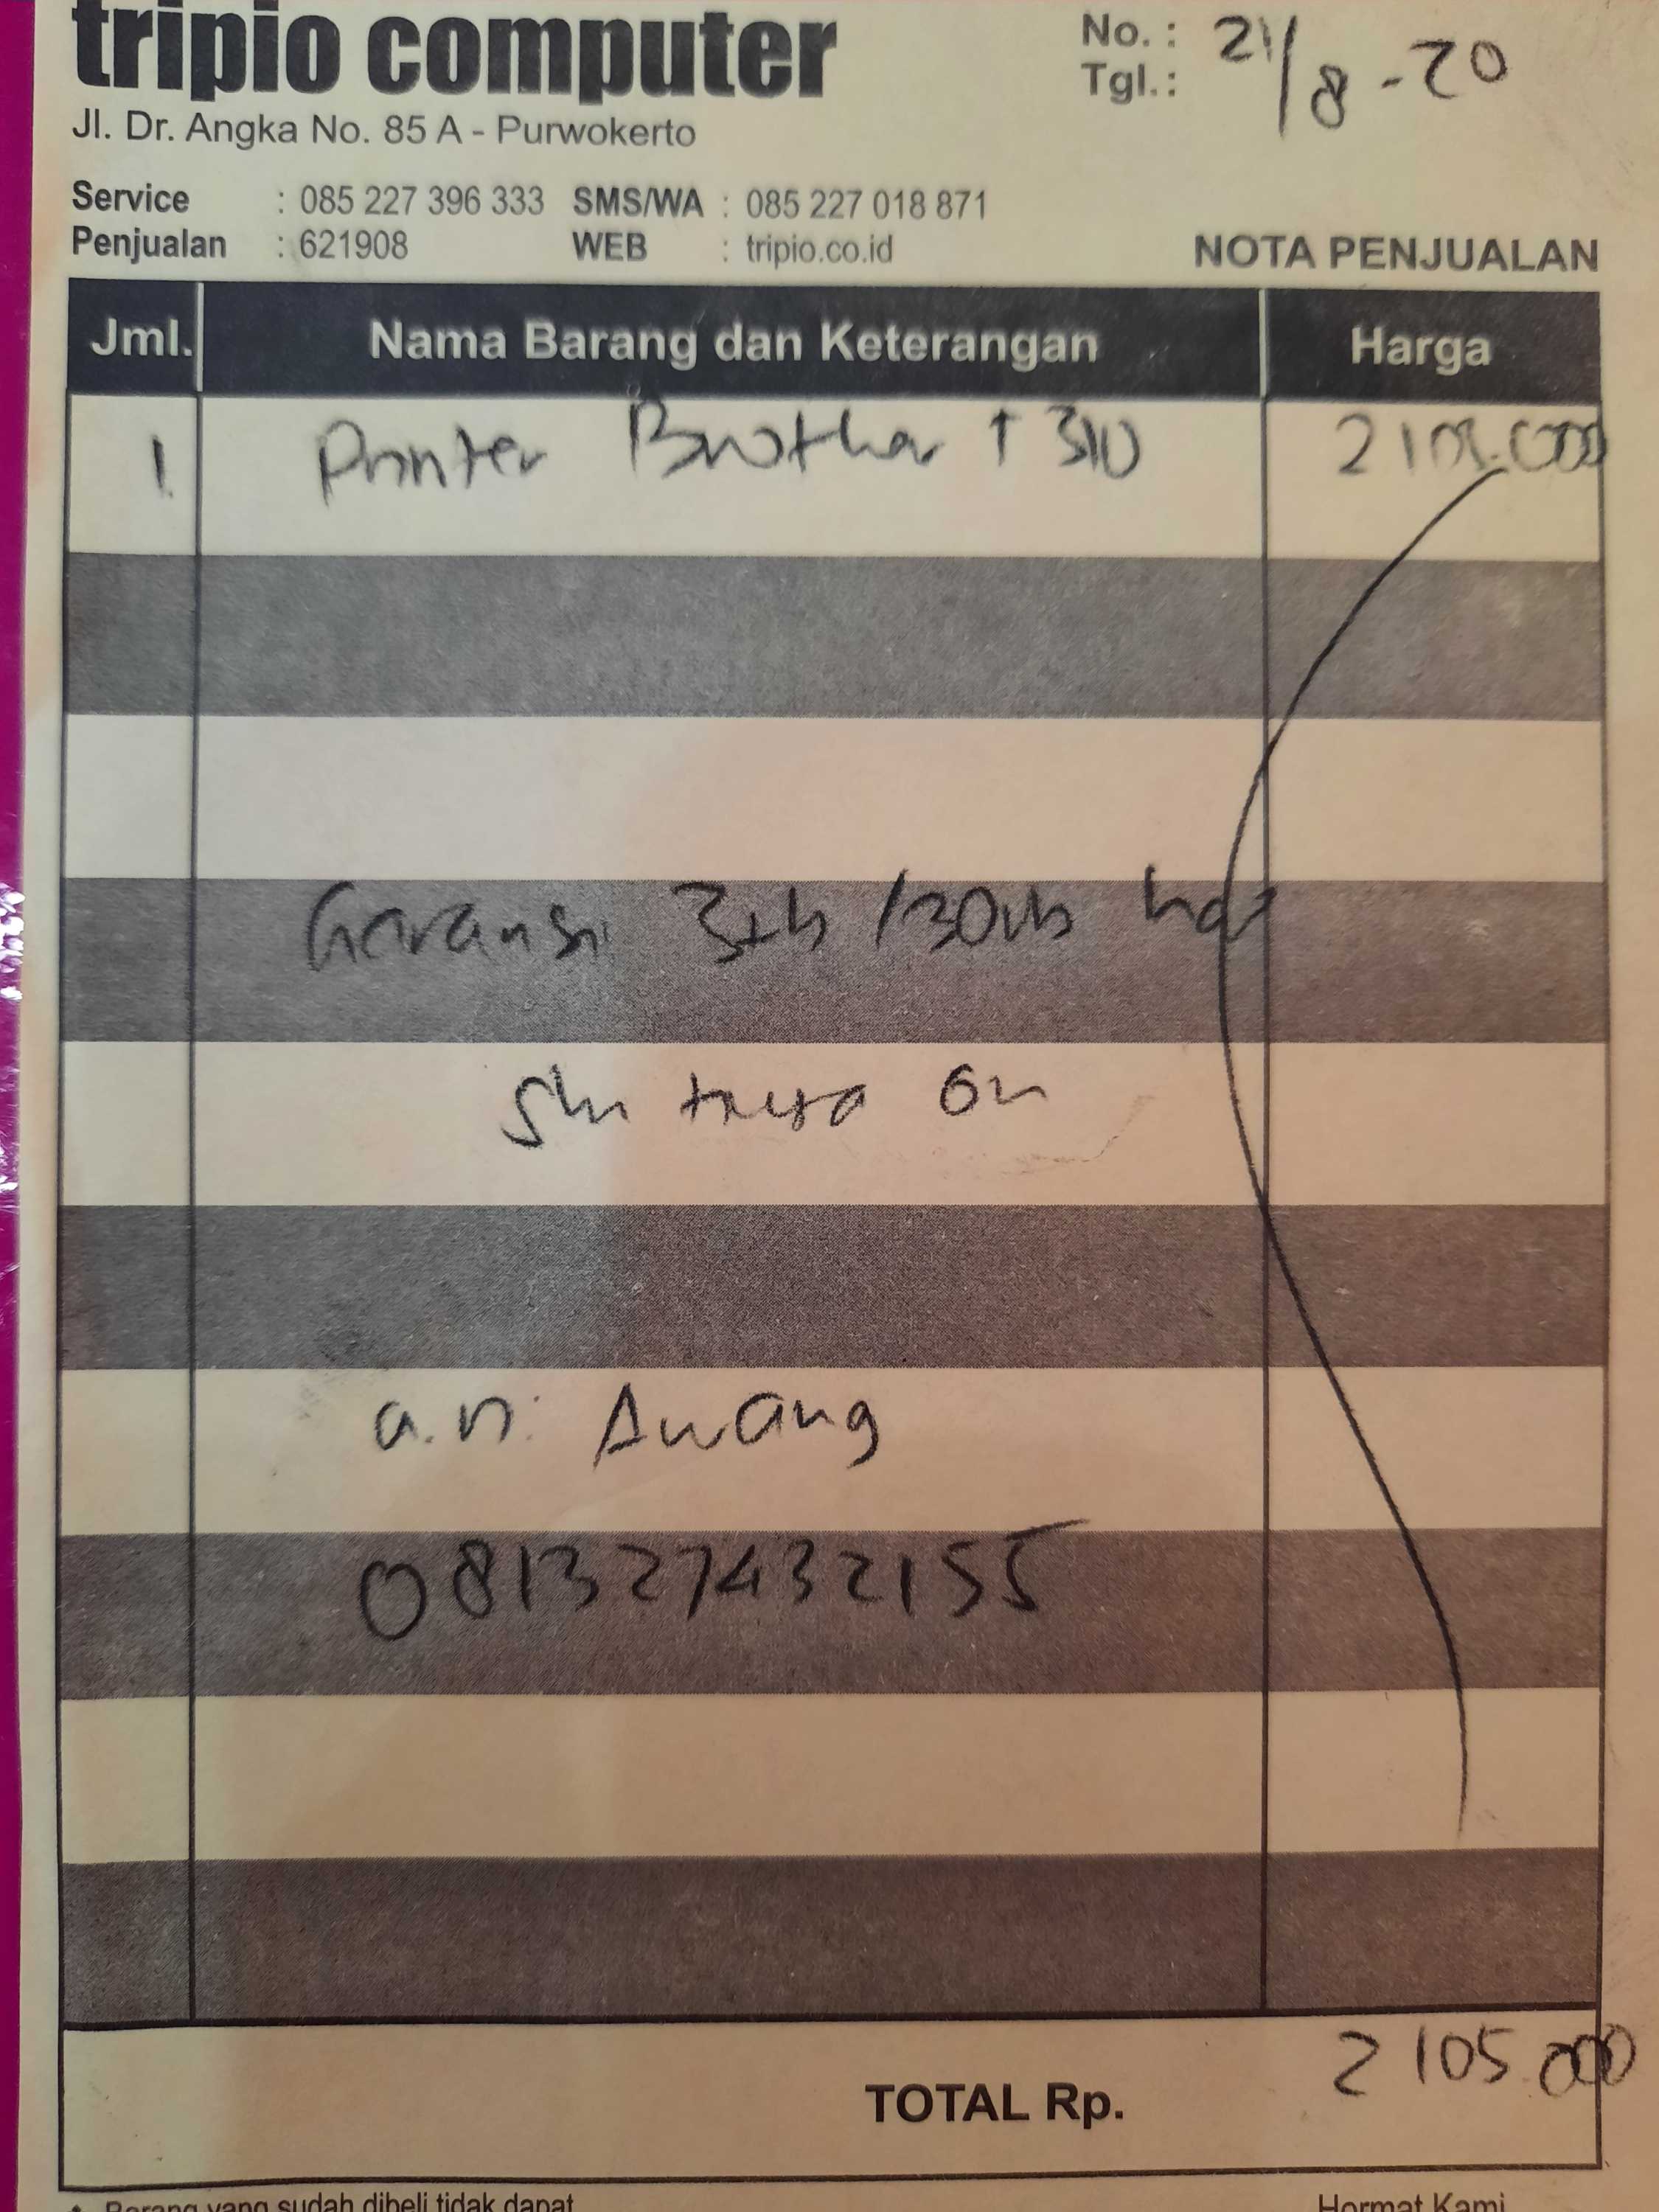 tripio computer
Jl. Dr. Angka No. 85 A - Purwokerto
No. :
Tgl. : 21/8-20
Service : 085 227 396 333 SMS/WA : 085 227 018 871
Penjualan : 621908 WEB : tripio.co.id
NOTA PENJUALAN
Jml. Nama Barang dan Keterangan Harga
1 Printer Brother T310 2105.000
Garansi 3th /30rb
a.n. Awang
081327432155
TOTAL Rp. 2105.000
Barang yang sudah dibeli tidak dapat
Hormat Kami